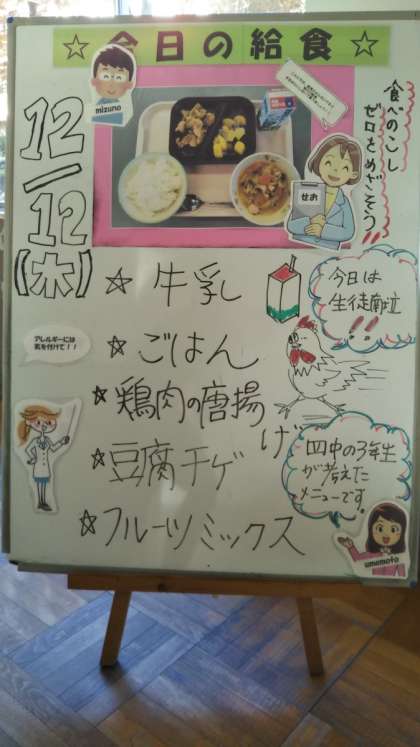 ☆今日の給食☆
mizuno
12/12
[木]
食べのこし
ゼロをめざそう!!
せお
☆ 牛乳
☆ ごはん
☆ 鶏肉の唐揚げ
☆ 豆腐チゲ
☆ フルーツミックス
アレルギーには
気を付けて!!
今日は
四中の3年生
が考えた
メニューです。
umemoto